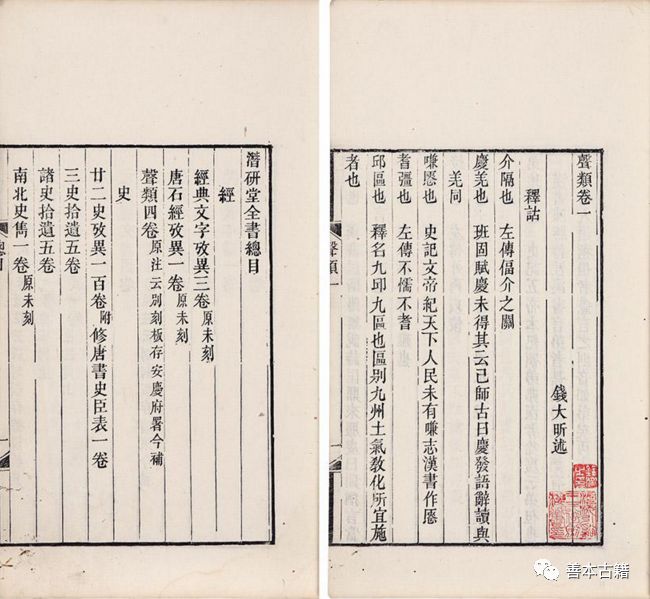 聲類卷一
錢大昕述
釋詁
介隔也　左傳偪介之關
慶羌也　班固賦慶未得其云已師古曰慶發語辭讀與
羌同
嗛㥦也　史記文帝紀天下人民未有嗛志漢書作㥦
耆彊也　左傳不懦不耆
邱區也　釋名九邱九區也區别九州土氣敎化所宜施
者也
聲類一
潛研堂全書總目
經
經典文字攷異三卷原未刻
唐石經攷異一卷原未刻
聲類四卷原注云别刻板存安慶府署今補
史
廿二史攷異一百卷附修唐書史臣表一卷
三史拾遺五卷
諸史拾遺五卷
南北史雋一卷原未刻
總目
善本古籍